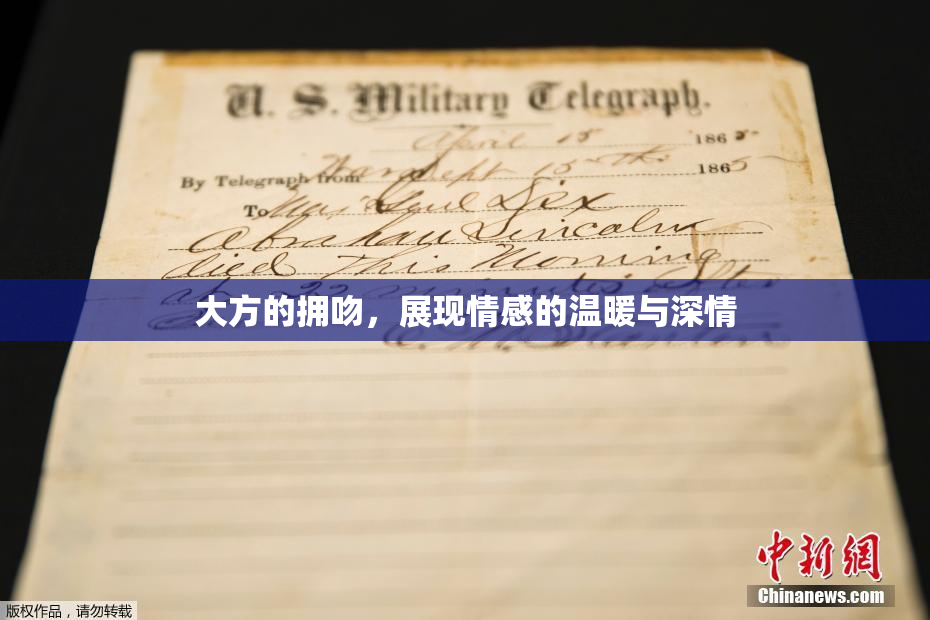 U. S. Military Telegraph.
April 15 1865
By Telegraph from War Dept 15th 1865
To Maj Genl Dix
Abraham Lincoln
died this Morning
at 22 minutes after
大方的拥吻，展现情感的温暖与深情
中新网
Chinanews.com
版权作品，请勿转载